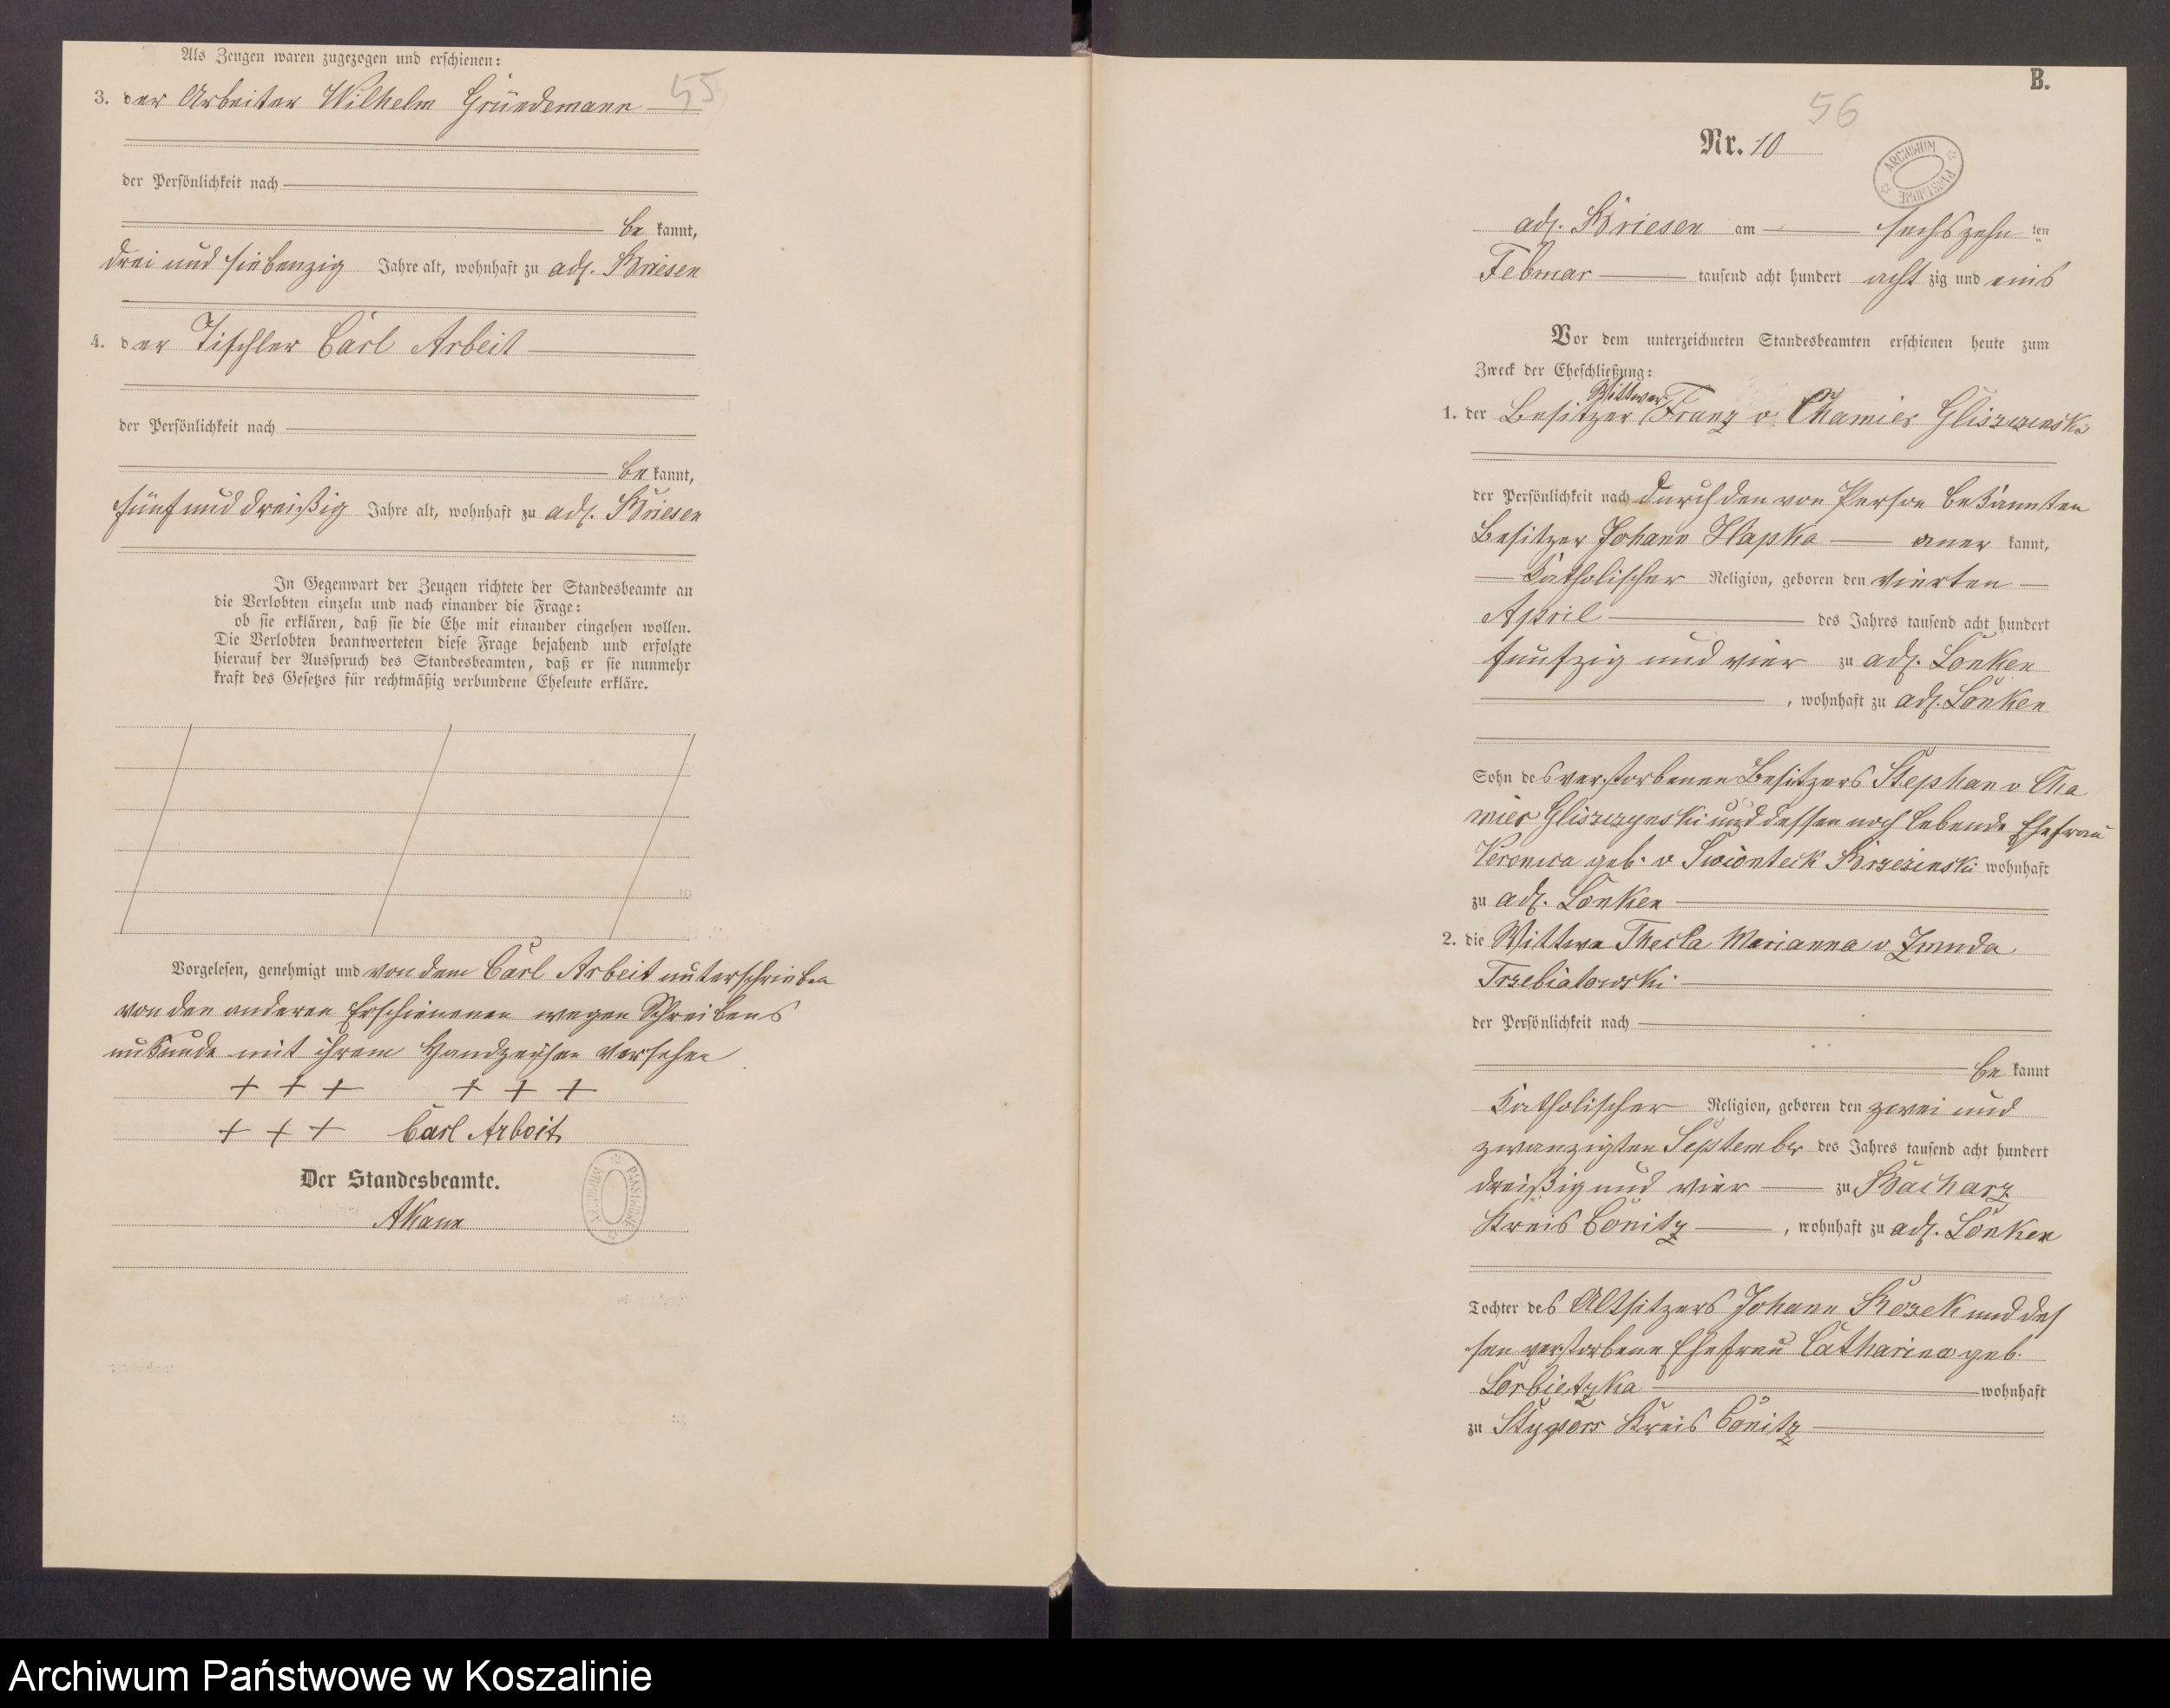 Als Zeugen waren zugezogen und erschienen:
3. der Arbeiter Wilhelm Gründemann
55
der Persönlichkeit nach
be kannt,
drei und siebenzig Jahre alt, wohnhaft zu adl. Briesen
4. der Tischler Carl Arbeit
der Persönlichkeit nach
be kannt,
fünf und dreißig Jahre alt, wohnhaft zu adl. Briesen
In Gegenwart der Zeugen richtete der Standesbeamte an
die Verlobten einzeln und nach einander die Frage:
ob sie erklären, daß sie die Ehe mit einander eingehen wollen.
Die Verlobten beantworteten diese Frage bejahend und erfolgte
hierauf der Ausspruch des Standesbeamten, daß er sie nunmehr
kraft des Gesetzes für rechtmäßig verbundene Eheleute erkläre.
Vorgelesen, genehmigt und von dem Carl Arbeit unterschrieben
von den anderen Erschienenen wegen Schreibens
unkunde mit ihrem Handzeichen versehen
+ + + + + +
+ + + Carl Arbeit
Der Standesbeamte.
ARCHIWUM PAŃSTWOWE
B.
56
Nr. 10
ARCHIWUM PAŃSTWOWE
adl. Briesen am sechszehn ten
Februar tausend acht hundert acht zig und eins
Vor dem unterzeichneten Standesbeamten erschienen heute zum
Zweck der Eheschließung:
Wittwer
1. der Besitzer Franz v Chamier Gliszczinski
der Persönlichkeit nach durch den von Person bekannten
Besitzer Johann Hapka aner kannt,
katholischer Religion, geboren den vierten
April des Jahres tausend acht hundert
funfzig und vier zu adl. Lonken
, wohnhaft zu adl. Lonken
Sohn des verstorbenen Besitzers Stephan v Cha
mier Gliszczynski und dessen noch lebende Ehefrau
Veronica geb. v Swionteck Brzezinski wohnhaft
zu adl. Lonken
2. die Wittwe Thecla Marianna v Zmuda
Trzebiatowski
der Persönlichkeit nach
be kannt
katholischer Religion, geboren den zwei und
zwanzigsten September des Jahres tausend acht hundert
dreißig und vier zu Bacharz
Kreis Conitz , wohnhaft zu adl. Lonken
Tochter des Altsitzers Johann Kozek und des
sen verstorbene Ehefrau Catharina geb.
Lorbietzka wohnhaft
zu Kreis Conitz
Archiwum Państwowe w Koszalinie